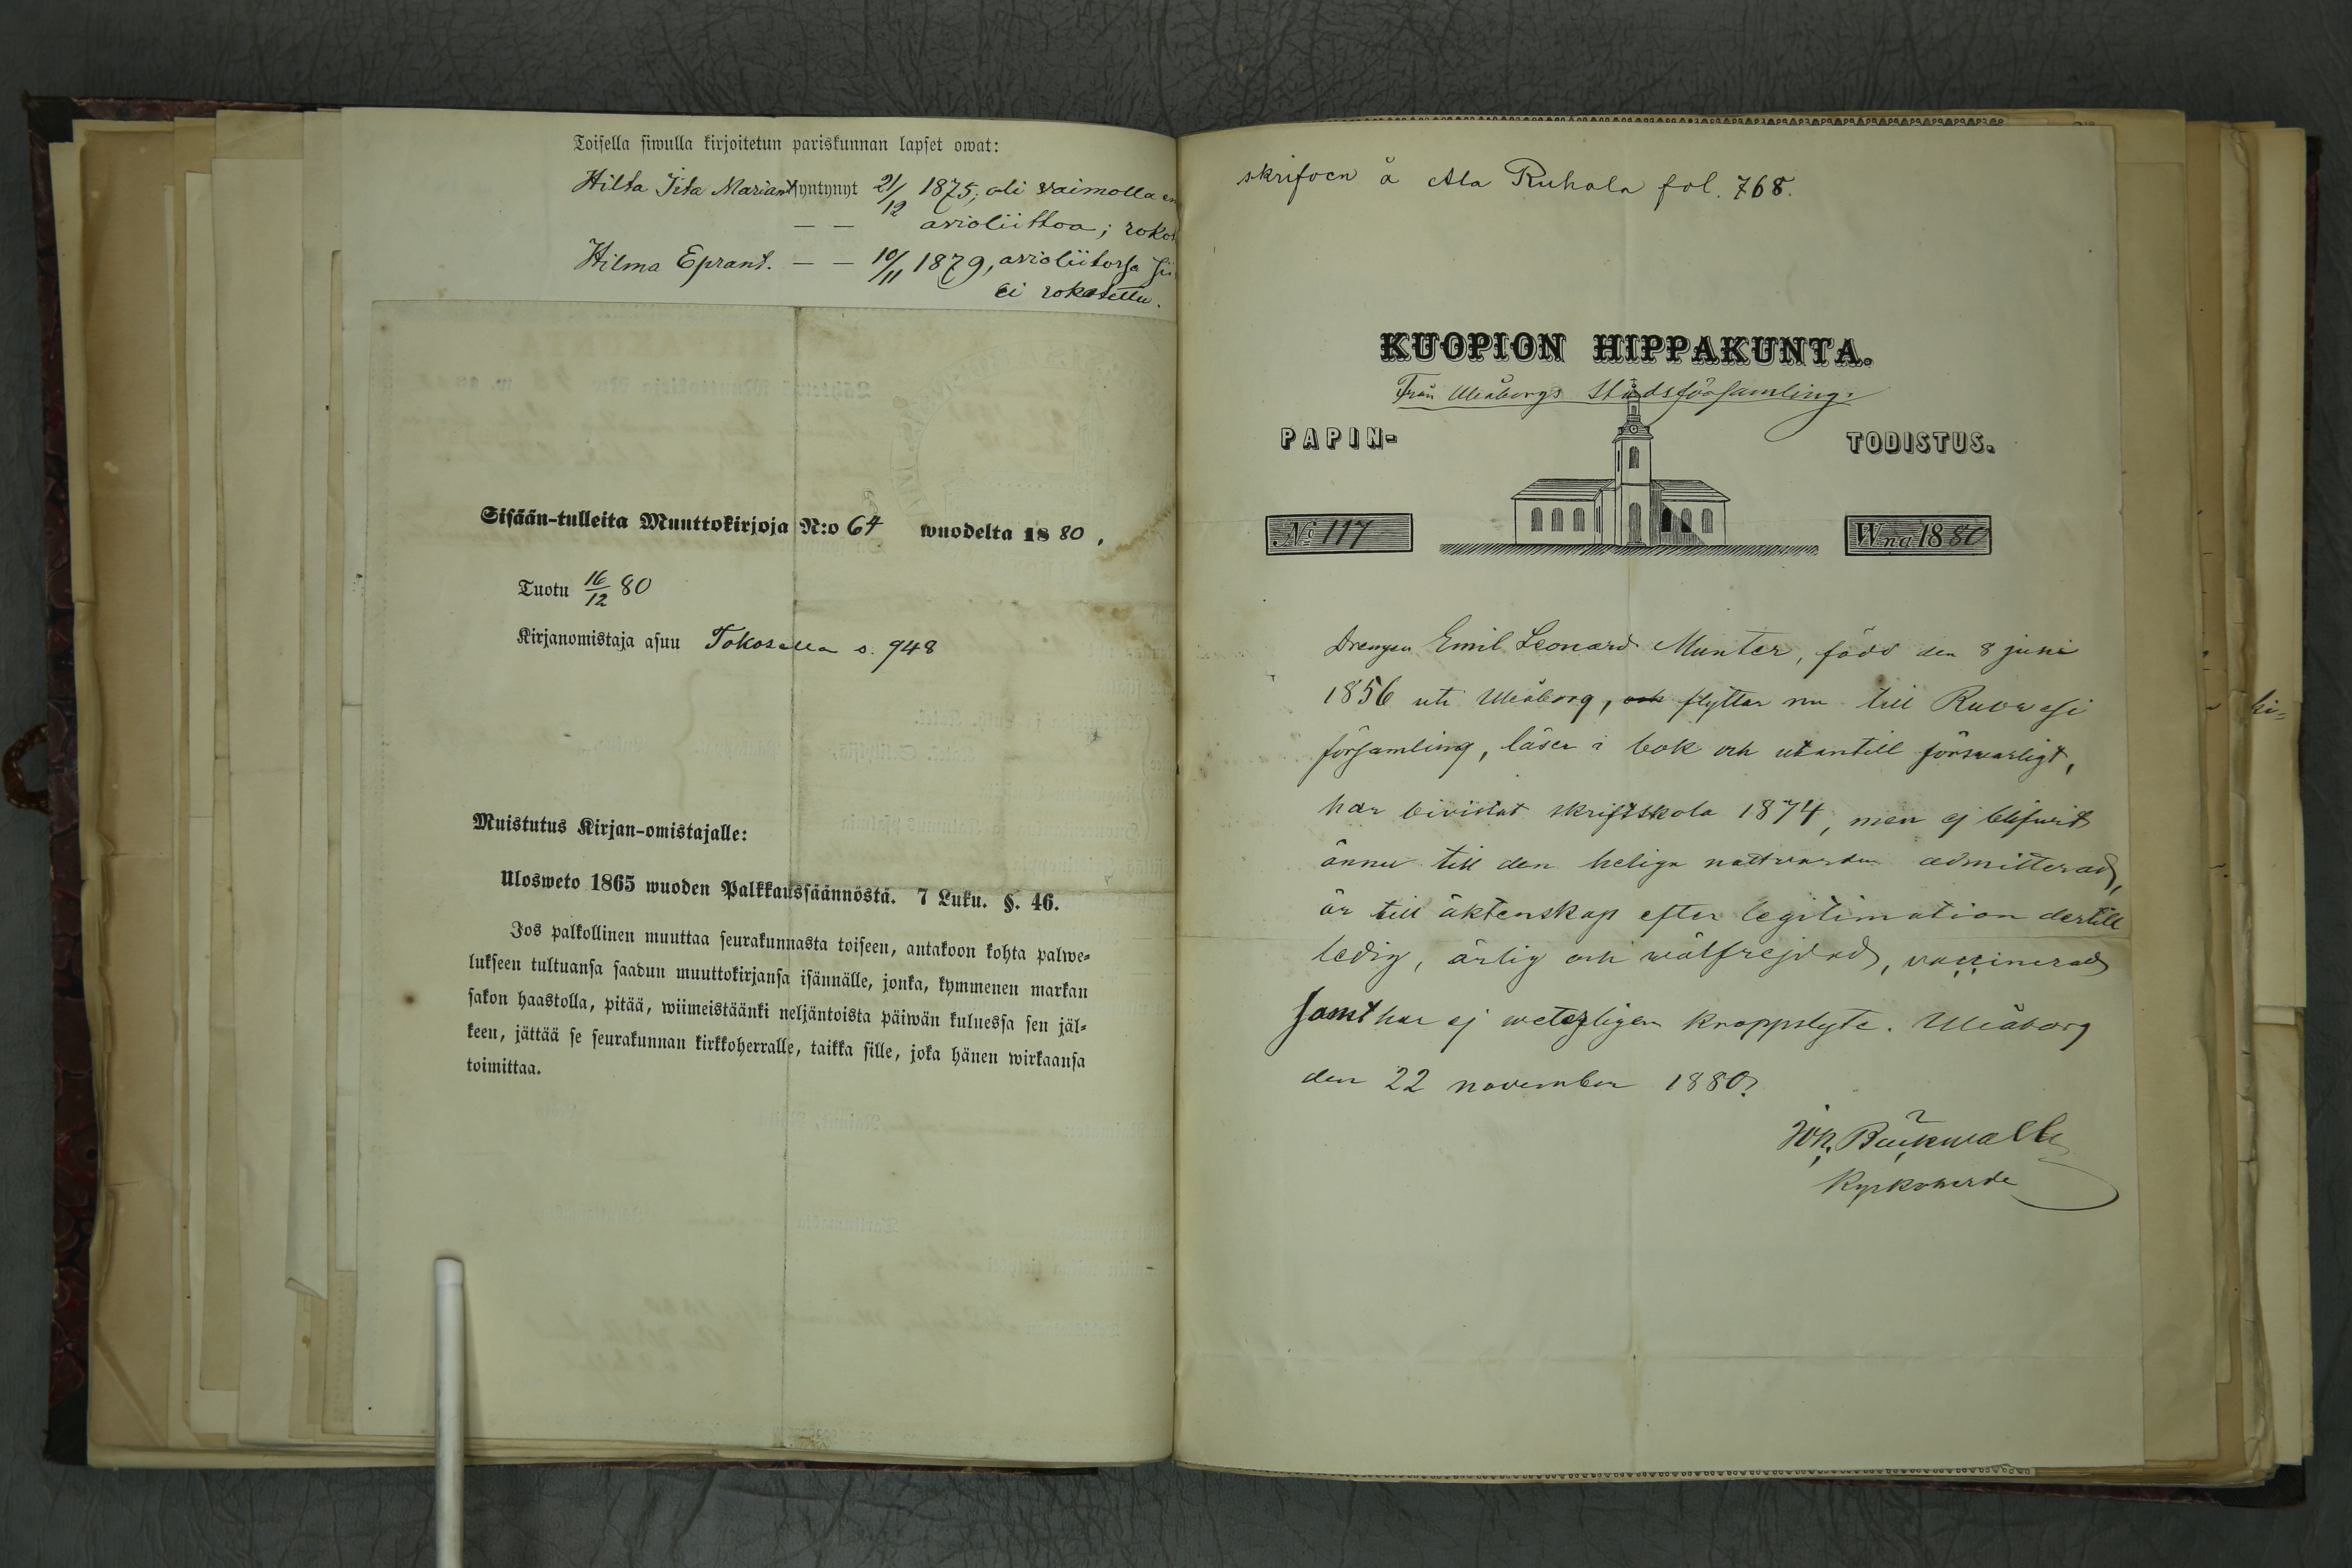 Toisella siwulla kirjoitetun pariskunnan lapset owat:
Hilta Iita Mariant. syntynyt 21/12 1875; oli vaimolla en
— — avioliittoa; rokot
Hilma Eprant. — — 10/11 1879, avioliitossa sii
ei rokotettu.
Sisään-tulleita Muuttokirjoja N:o 64 wuodelta 1880,
Tuotu 16/12 80
Kirjanomistaja asuu Tokosella s. 948
Muistutus Kirjan-omistajalle:
Ulosweto 1865 wuoden Palkkaussäännöstä. 7 Luku. §. 46.
Jos palkollinen muuttaa seurakunnasta toiseen, antakoon kohta palwe-
lukseen tultuansa saadun muuttokirjansa isännälle, jonka, kymmenen markan
sakon haastolla, pitää, wiimeistäänki neljäntoista päiwän kuluessa sen jäl-
keen, jättää se seurakunnan kirkkoherralle, taikka sille, joka hänen wirkaansa
toimittaa.
skrifven å Ala Ruhala fol. 768.
KUOPION HIPPAKUNTA.
Från Uleåborgs Stadsförsamling.
PAPIN-
TODISTUS.
No 117
Wna 1880
Drengen Emil Leonard Munter, född den 8 juni
1856 uti Uleåborg, och flyttar nu till Ruovesi
församling, läser i bok och utantill försvarligt,
har bivistat skriftskola 1874, men ej blifvit
ännu till den heliga nattvarden admitterad,
är till äktenskap efter legitimation dertill
ledig, ärlig och wälfrejdad, vaccinerad
samt har ej veterligen kroppslyte. Uleåborg
den 22 november 1880.
Joh. Bäckwall
Kyrkoherde